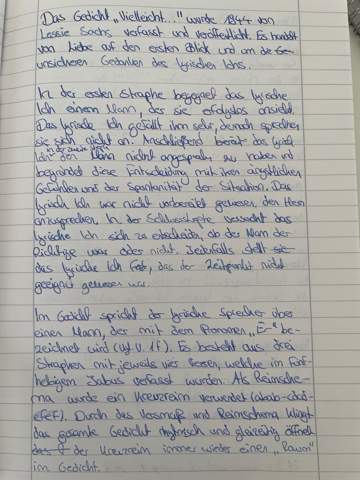 Das Gedicht „Vielleicht..." wurde 1844 von
Lessie Sachs, verfasst und veröffentlicht. Es handelt
von Liebe auf den ersten Blick und um die
unsicheren Gedanken des lyrischen Ichs.
In der ersten Strophe begegnet das lyrische
Ich einem Mann, der sie erfolglos ansieht.
Das lyrische Ich gefällt ihm sehr, dennoch sprechen
sie sich nicht an. Anschließend bereut das lyrische
in der zweiten Strophe
Ich den Mann nicht angesprochen zu haben und
begründet diese Entscheidung mit ihren ängstlichen
Gefühlen und der Spontanität der Situation. Das
lyrisch Ich war nicht vorbereitet gewesen, den Herrn
anzusprechen. In der Schlussstrophe versucht das
lyrische Ich sich zu entscheiden, ob der Mann der
Richtige war oder nicht. Jedenfalls stellt sie
das lyrische Ich fest, das der Zeitpunkt nicht
geeignet gewesen war.
Im Gedicht spricht der lyrische Sprecher über
einen Mann, der mit dem Pronomen „Er" be-
zeichnet wird (vgl. V. 1f.). Es besteht aus drei
Strophen mit jeweils vier Versen, welche im fünf-
hebigen Jabus verfasst wurden. Als Reimsche-
ma wurde ein Kreuzreim verwendet (abab-cdcd-
efef). Durch das Versmaß und Reimschema klingt
das gesamte Gedicht rhythmisch und gleichzeitig öffnet
der Kreuzreim immer wieder einen „Raum"
im Gedicht.